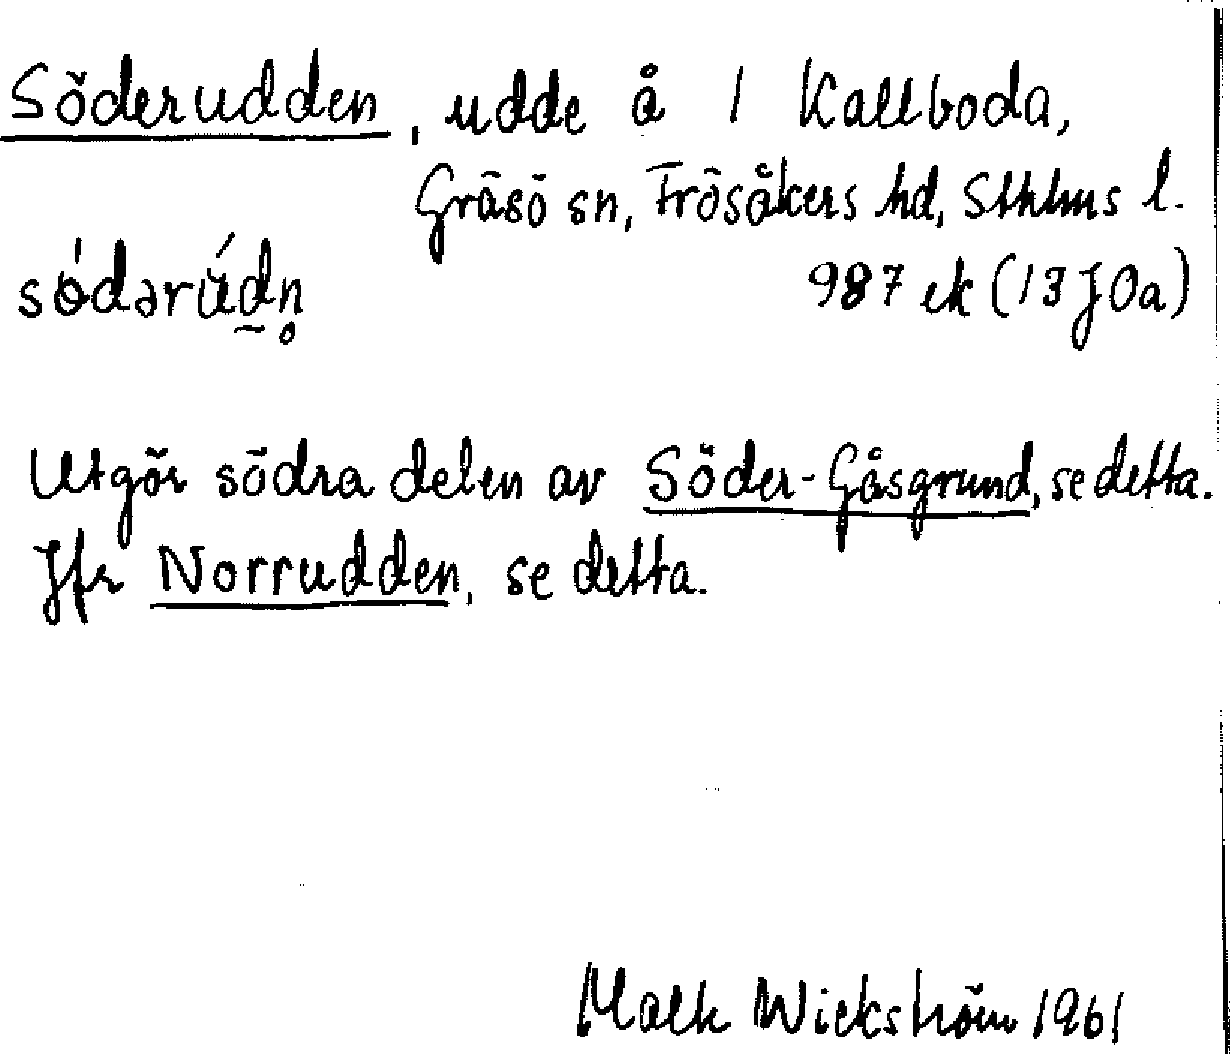 Söderudden, udde å 1 Kallboda,
Gräsö sn, Frösåkers hd, Sthlms l.
södərúdn̥ 987 ek (13J0a)
Utgör södra delen av Söder-Gåsgrund, se detta.
Jfr Norrudden, se detta.
Wickström 1961